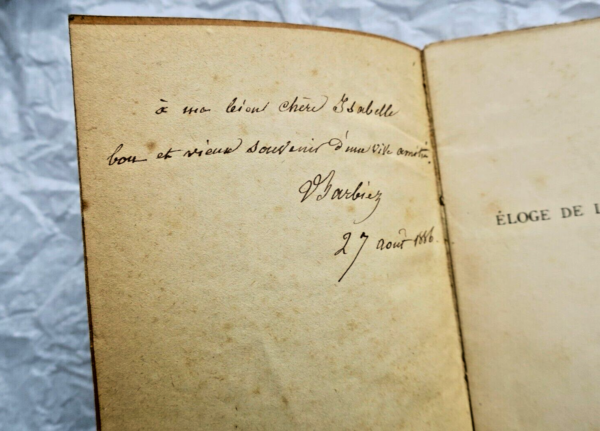 à ma bien chère Isabelle
bon et vieux souvenir d'une vive
VBarbiez
27 août 1886
ÉLOGE DE L